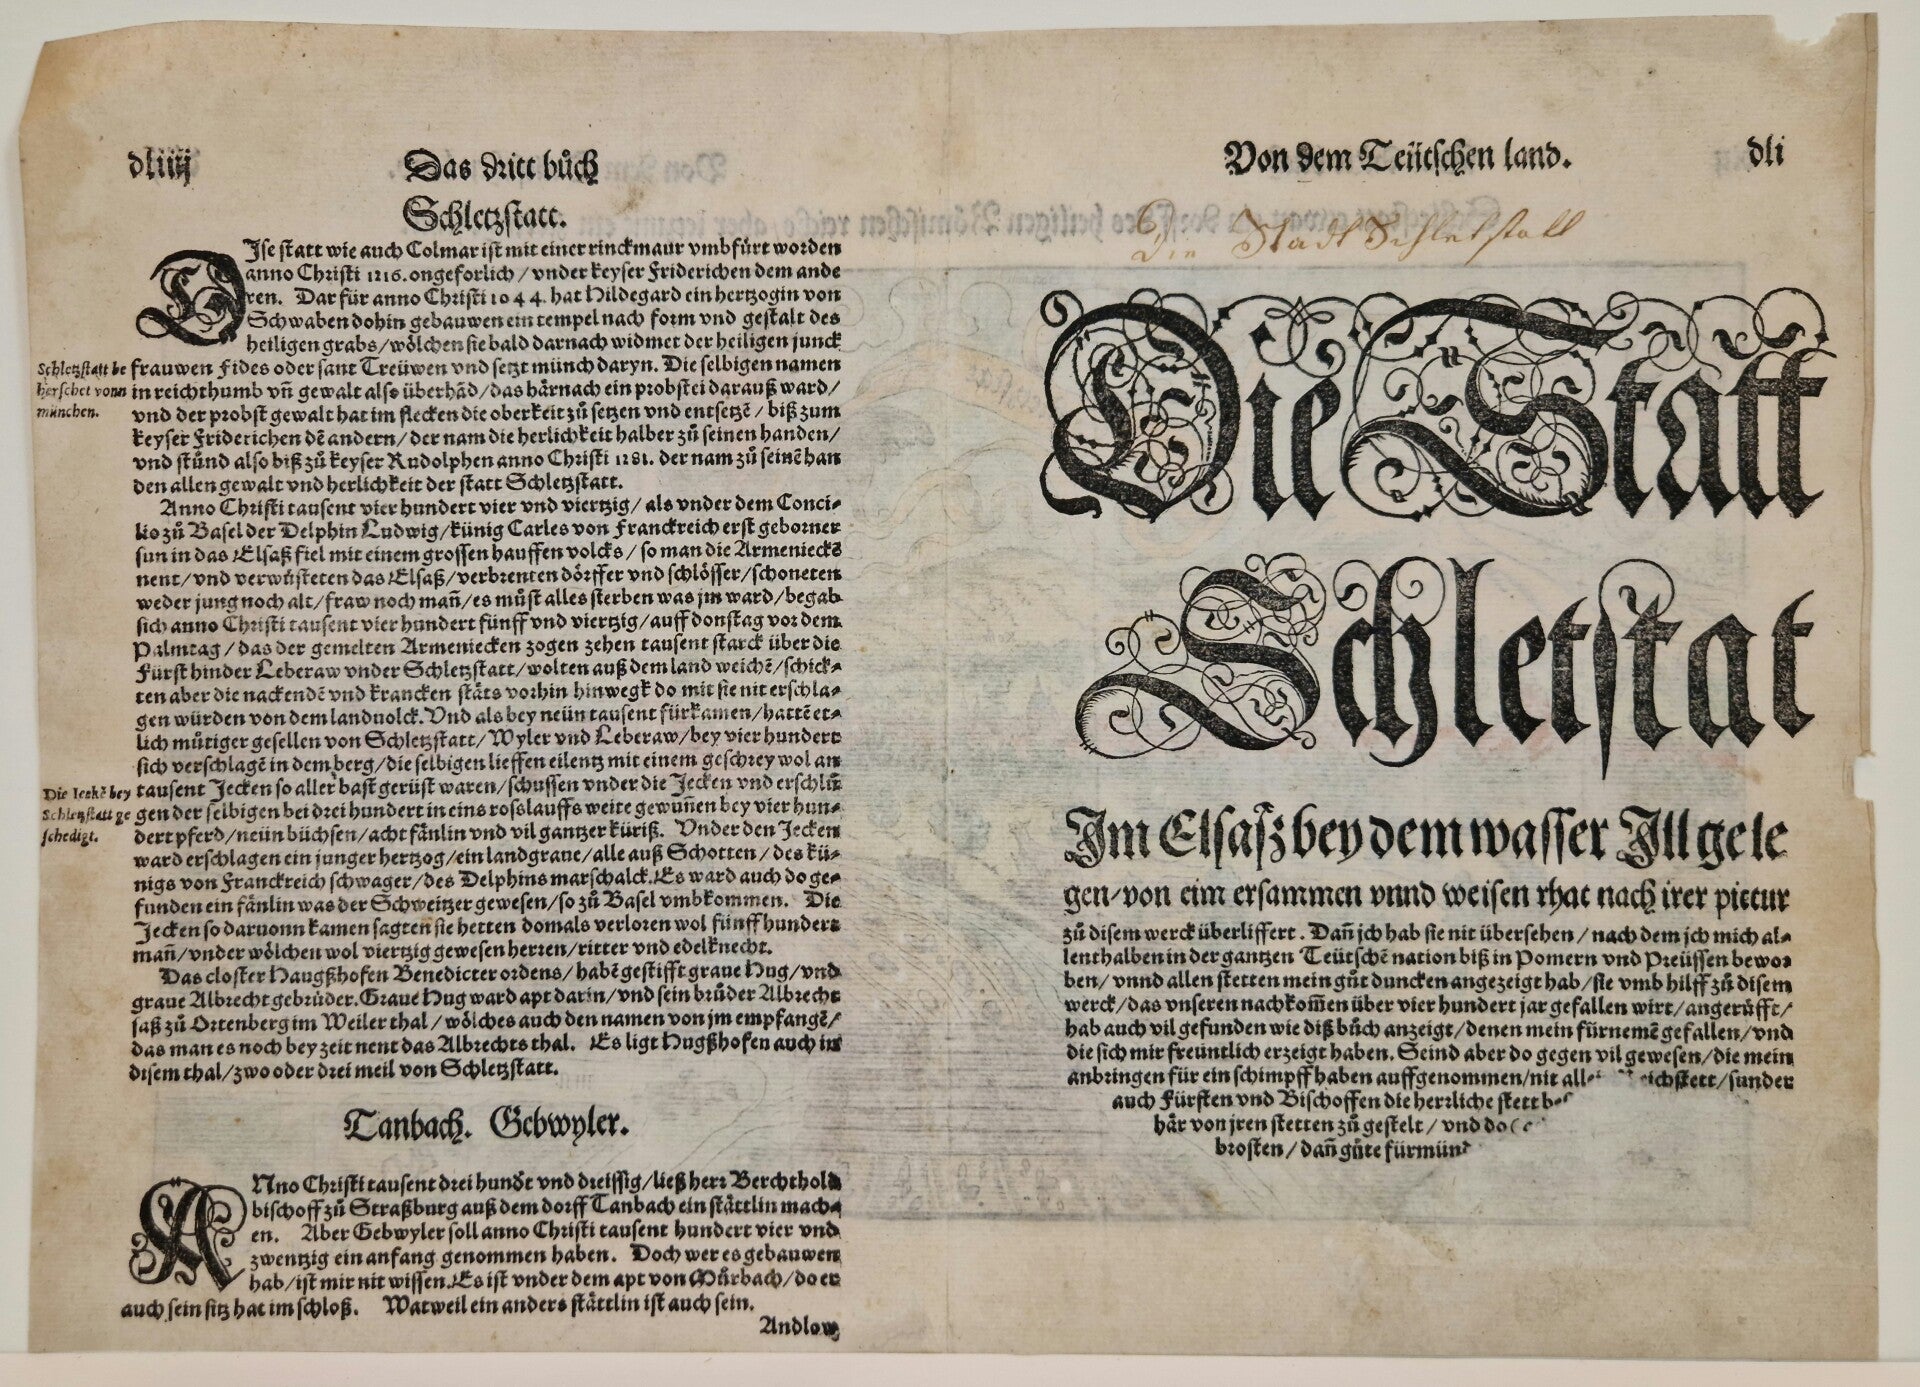 dliiij
Das dritt bůch
Schletzstatt.
DIse statt wie auch Colmar ist mit einer rinckmaur vmbfürt worden
anno Christi 1216. ongeforlich / vnder keyser Friderichen dem ande
ren. Dar für anno Christi 1044. hat Hildegard ein hertzogin von
Schwaben dohin gebauwen ein tempel nach form vnd gestalt des
heiligen grabs / wölchen sie bald darnach widmet der heiligen junck
frauwen Fides oder sant Treüwen vnd setzt münch daryn. Die selbigen namen
in reichthumb vñ gewalt also überhãd / das härnach ein probstei darauß ward /
vnd der probst gewalt hat im flecken die oberkeit zů setzen vnd entsetzẽ / biß zum
keyser Friderichen dẽ andern / der nam die herlichkeit halber zů seinen handen /
vnd stůnd also biß zů keyser Rudolphen anno Christi 1281. der nam zů seinẽ han
den allen gewalt vnd herlichkeit der statt Schletzstatt.
Schletzstatt be
herschet vonn
münchen.
Anno Christi tausent vier hundert vier vnd viertzig / als vnder dem Conci⸗
lio zů Basel der Delphin Ludwig / künig Carles von Franckreich erst geborner
sun in das Elsaß fiel mit einem grossen hauffen volcks / so man die Armenieckẽ
nent / vnd verwůsteten das Elsaß / verbrenten dörffer vnd schlösser / schoneten
weder jung noch alt / fraw noch mañ / es můst alles sterben was jm ward / begab
sich anno Christi tausent vier hundert fünff vnd viertzig / auff donstag vor dem
Palmtag / das der gemelten Armeniecken zogen zehen tausent starck über die
Fürst hinder Leberaw vnder Schletzstatt / wolten auß dem land weichẽ / schick⸗
ten aber die nackendẽ vnd krancken stäts vorhin hinwegk do mit sie nit erschla⸗
gen würden von dem landuolck. Vnd als bey neün tausent fürkamen / hattẽ et⸗
lich můtiger gesellen von Schletzstatt / Wyler vnd Leberaw / bey vier hundert
sich verschlagẽ in dem berg / die selbigen lieffen eilentz mit einem geschrey wol an
tausent Jecken so aller bast gerüst waren / schussen vnder die Jecken vnd erschlů
gen der selbigen bei drei hundert in eins rosslauffs weite gewuñen bey vier hun⸗
dert pferd / neün büchsen / acht fänlin vnd vil gantzer küriß. Vnder den Jecken
ward erschlagen ein junger hertzog / ein landgraue / alle auß Schotten / des kü⸗
nigs von Franckreich schwager / des Delphins marschalck. Es ward auch do ge⸗
funden ein fänlin was der Schweitzer gewesen / so zů Basel vmbkommen. Die
Jecken so daruonn kamen sagten sie hetten domals verloren wol fünff hundert
mañ / vnder wölchen wol viertzig gewesen herren / ritter vnd edelknecht.
Die Ieckẽ bey
Schletzstatt ge
schedigt.
Das closter Haugßhofen Benedicter ordens / habẽ gestifft graue Hug / vnd
graue Albrecht gebrüder. Graue Hug ward apt darin / vnd sein brůder Albrecht
saß zů Ortenberg im Weiler thal / wölches auch den namen von jm empfangẽ /
das man es noch bey zeit nent das Albrechts thal. Es ligt Hugßhofen auch in
disem thal / zwo oder drei meil von Schletzstatt.
Tanbach. Gebwyler.
ANno Christi tausent drei hundẽt vnd dreissig / ließ herr Berchthold
bischoff zů Straßburg auß dem dorff Tanbach ein stättlin mach⸗
en. Aber Gebwyler soll anno Christi tausent hundert vier vnd
zwentzig ein anfang genommen haben. Doch wer es gebauwen
hab / ist mir nit wissen. Es ist vnder dem apt von Můrbach / do er
auch sein sitz hat im schloß. Watweil ein anders stättlin ist auch sein.
Andlow
Von dem Teütschen land.
dli
Die Stadt Schletstatt
Die Statt
Schletstat
Im Elsasz bey dem wasser Ill gele
gen / von eim ersammen vnnd weisen rhat nach irer pictur
zů disem werck überliffert. Dañ jch hab sie nit übersehen / nach dem jch mich al⸗
lenthalben in der gantzen Teütschẽ nation biß in Pomern vnd Preüssen bewor
ben / vnnd allen stetten mein gůt duncken angezeigt hab / sie vmb hilff zů disem
werck / das vnseren nachkom̃en über vier hundert jar gefallen wirt / angerůfft /
hab auch vil gefunden wie diß bůch anzeigt / denen mein fürnemẽ gefallen / vnd
die sich mir freüntlich erzeigt haben. Seind aber do gegen vil gewesen / die mein
anbringen für ein schimpff haben auffgenommen / nit ichstett / sunder
auch Fürsten vnd Bischoffen die herrliche stett
här von jren stetten zů gestelt / vnd do
brosten / dañ gůte fürmünd